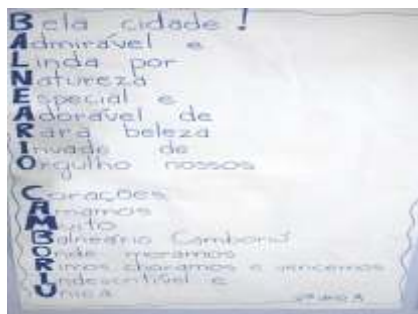 Bela cidade!
Admirável e
Linda por
Natureza
Especial e
Adorável de
Rara beleza
Invade de
Orgulho nossos
Corações
Amamos
Muito
Balneário Camboriú
Onde moramos
Rimos, choramos e vencemos
Indescritível e
Única